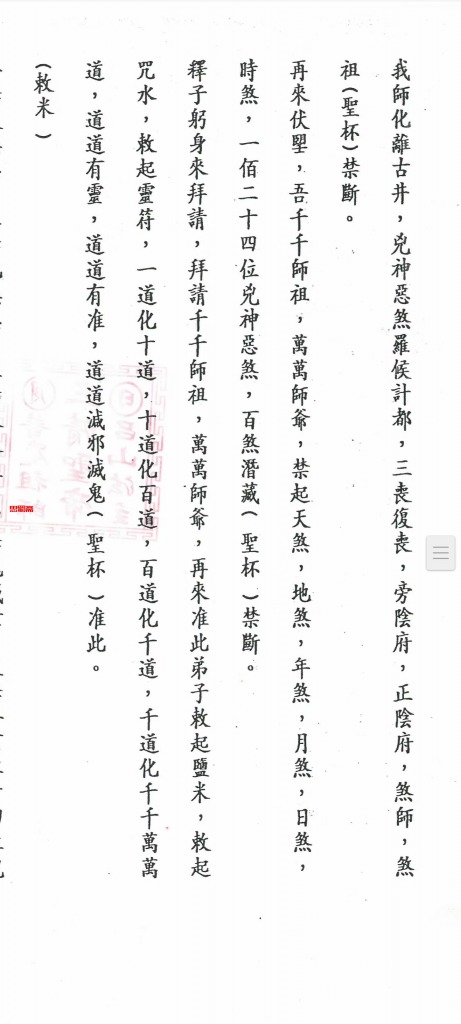 我師化離古井，兇神惡煞羅候計都，三喪復喪，旁陰府，正陰府，煞師，煞
祖(聖杯)禁斷。
再來伏壆，吾千千師祖，萬萬師爺，禁起天煞，地煞，年煞，月煞，日煞，
時煞，一佰二十四位兇神惡煞，百煞潛藏(聖杯)禁斷。
釋子躬身來拜請，拜請千千師祖，萬萬師爺，再來准此弟子敕起鹽米，敕起
咒水，敕起靈符，一道化十道，十道化百道，百道化千道，千道化千千萬萬
道，道道有靈，道道有准，道道滅邪滅鬼(聖杯)准此。
(敕米)